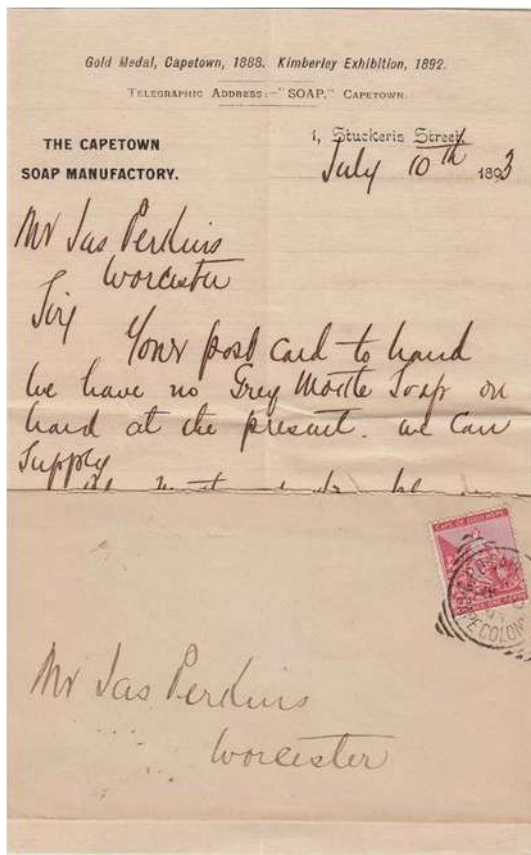 Gold Medal, Capetown, 1888. Kimberley Exhibition, 1892.
TELEGRAPHIC ADDRESS:—"SOAP," CAPETOWN.
THE CAPETOWN
SOAP MANUFACTORY.
1, Stuckeris Street,
July 10th 1893
Mr Jas Perkins
Worcester
Sir
Your post card to hand
we have no Grey Mottle Soap on
hand at the present. we can
Supply
CAPE OF GOOD HOPE
PE COLON
Mr Jas Perkins
Worcester